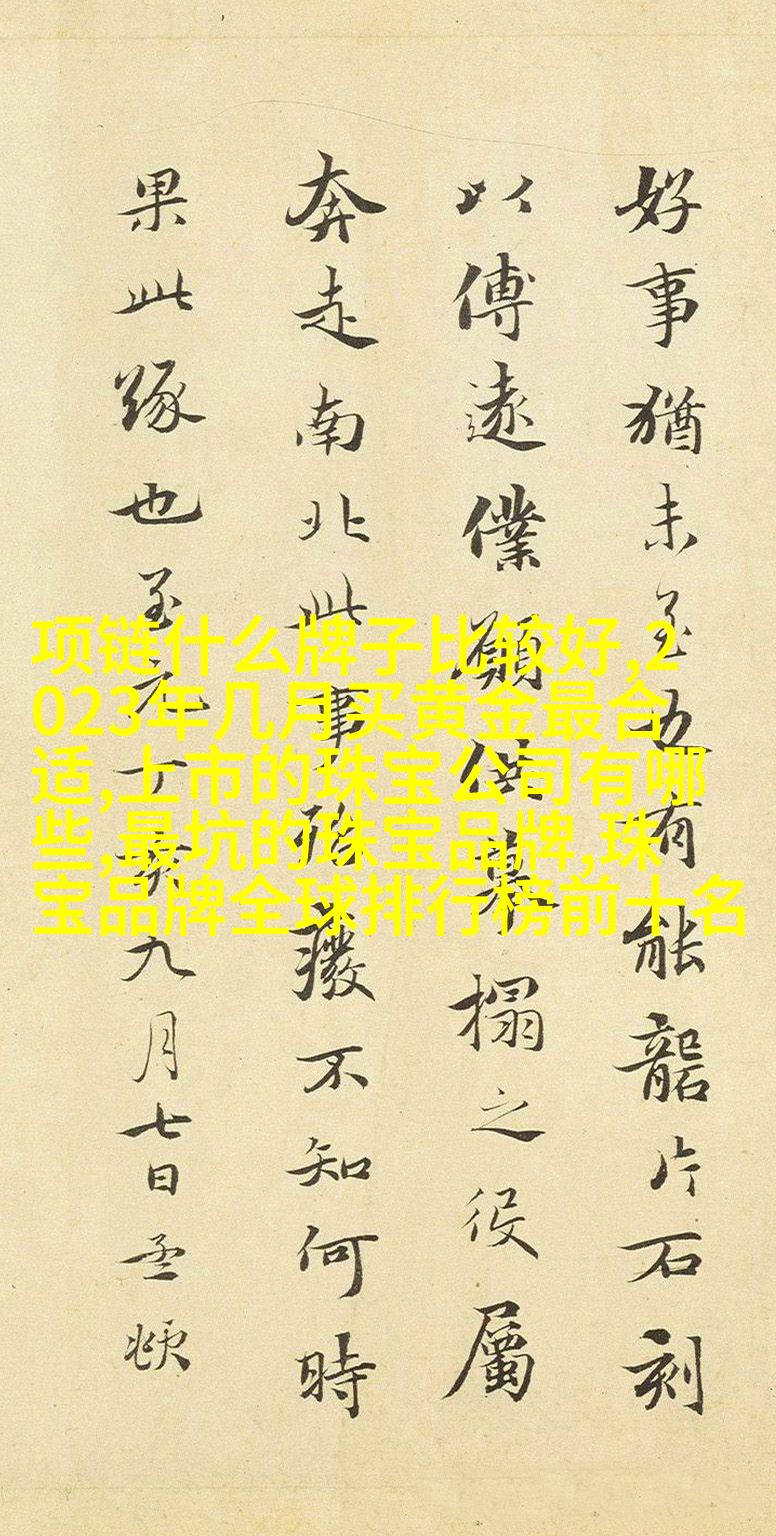 好事猶未至有能礱片石刻
以傳遠僕願供摹搨之役屬
奔走南北此事殆廢不知何時
果此緣也至元丁亥九月七日孟頫
项链什么牌子比较好,2
023年几月买黄金最合
适,上市的珠宝公司有哪
些,最坑的珠宝品牌,珠
宝品牌全球排行榜前十名